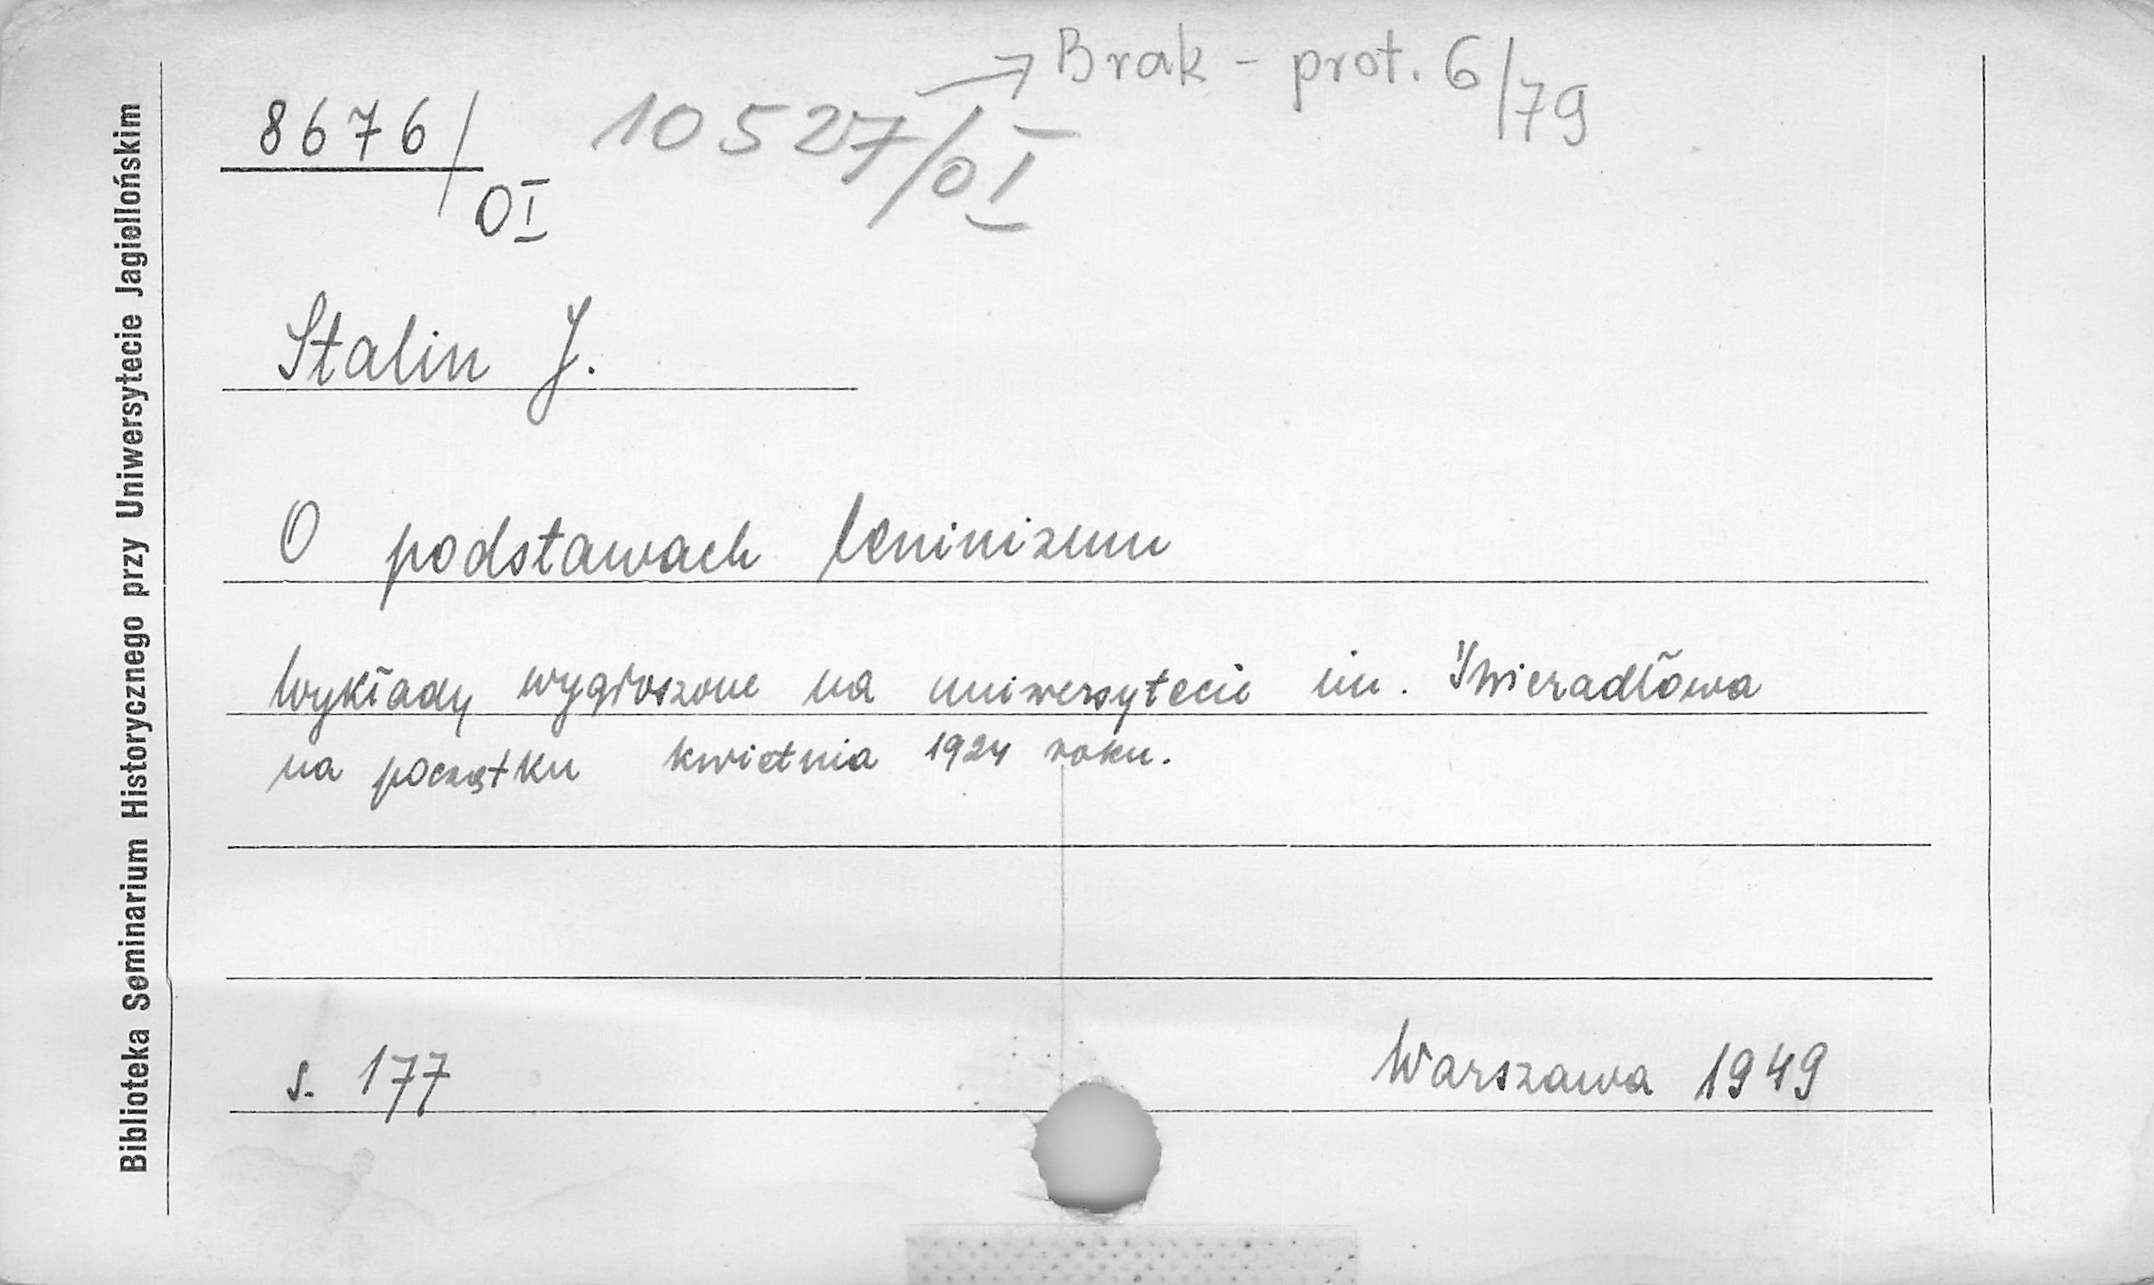 → Brak - prot. 6/79
8676/OI 10527/OI
Stalin J.
O podstawach leninizmu
Wykłady wygłoszone na uniwersytecie im. Swierdłowa
na początku kwietnia 1924 roku.
s. 177 Warszawa 1949
Biblioteka Seminarium Historycznego przy Uniwersytecie Jagiellońskim